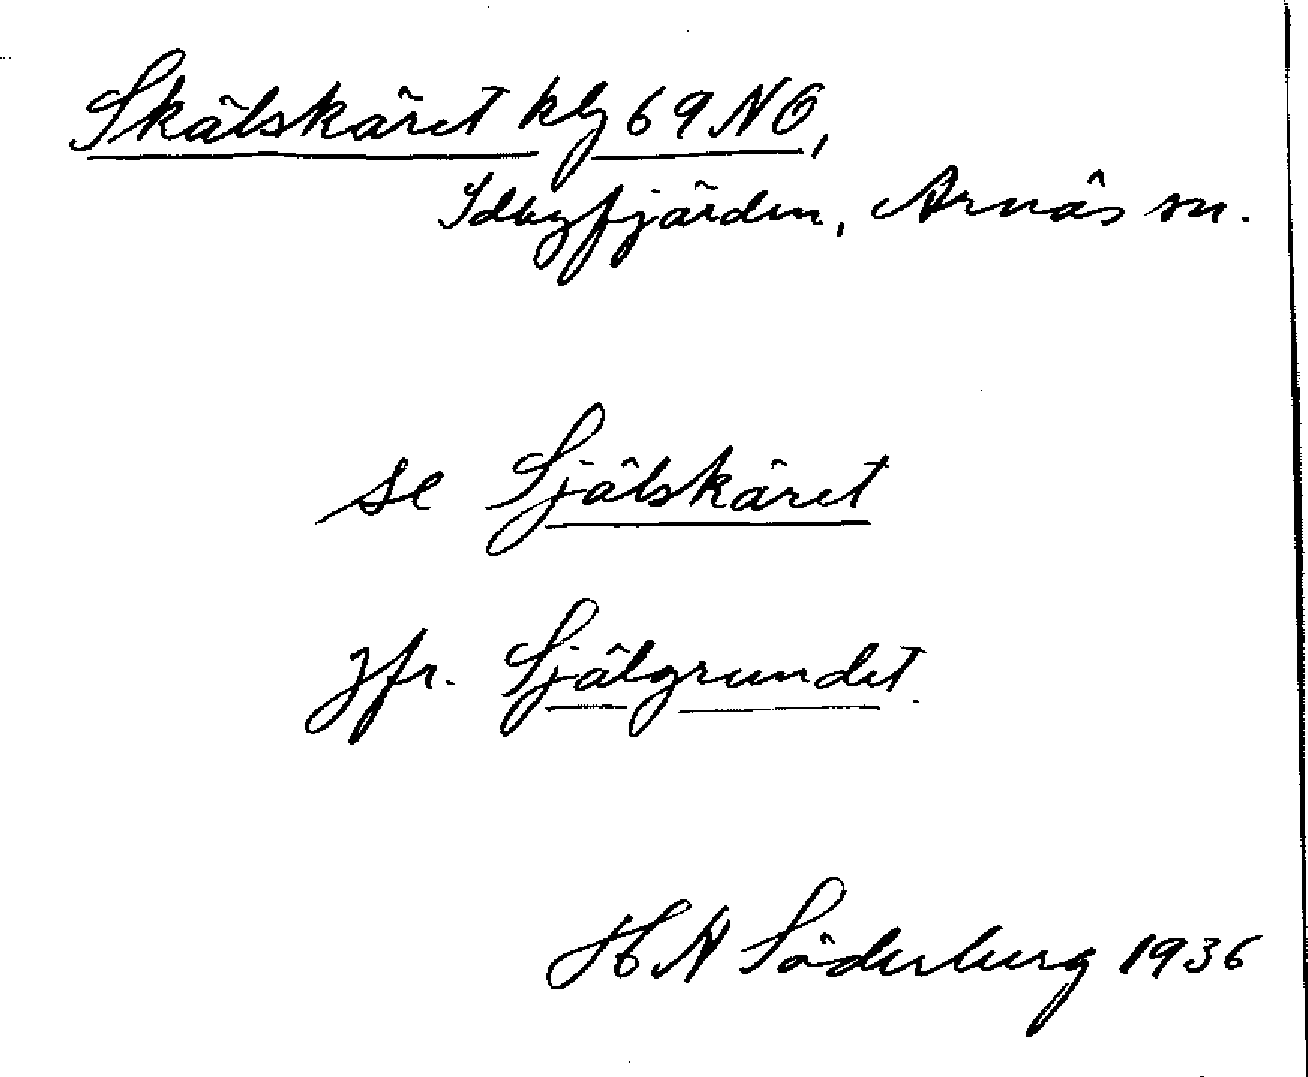 Skälskäret klg 69 NO,
Idbyfjärden, Arnäs sn.
se Själskäret
jfr. Själgrundet.
H A Söderberg 1936